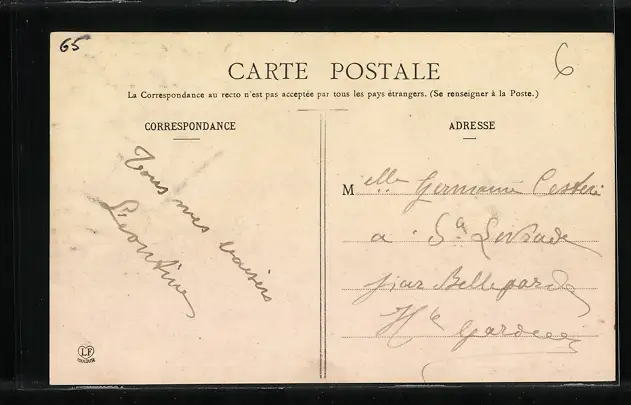 65
6
CARTE POSTALE
La Correspondance au recto n'est pas acceptée par tous les pays étrangers. (Se renseigner à la Poste.)
CORRESPONDANCE
ADRESSE
Tous mes baisers
Léontine
Melle Germaine
a
par Bellegarde
Hte Garonne
LF